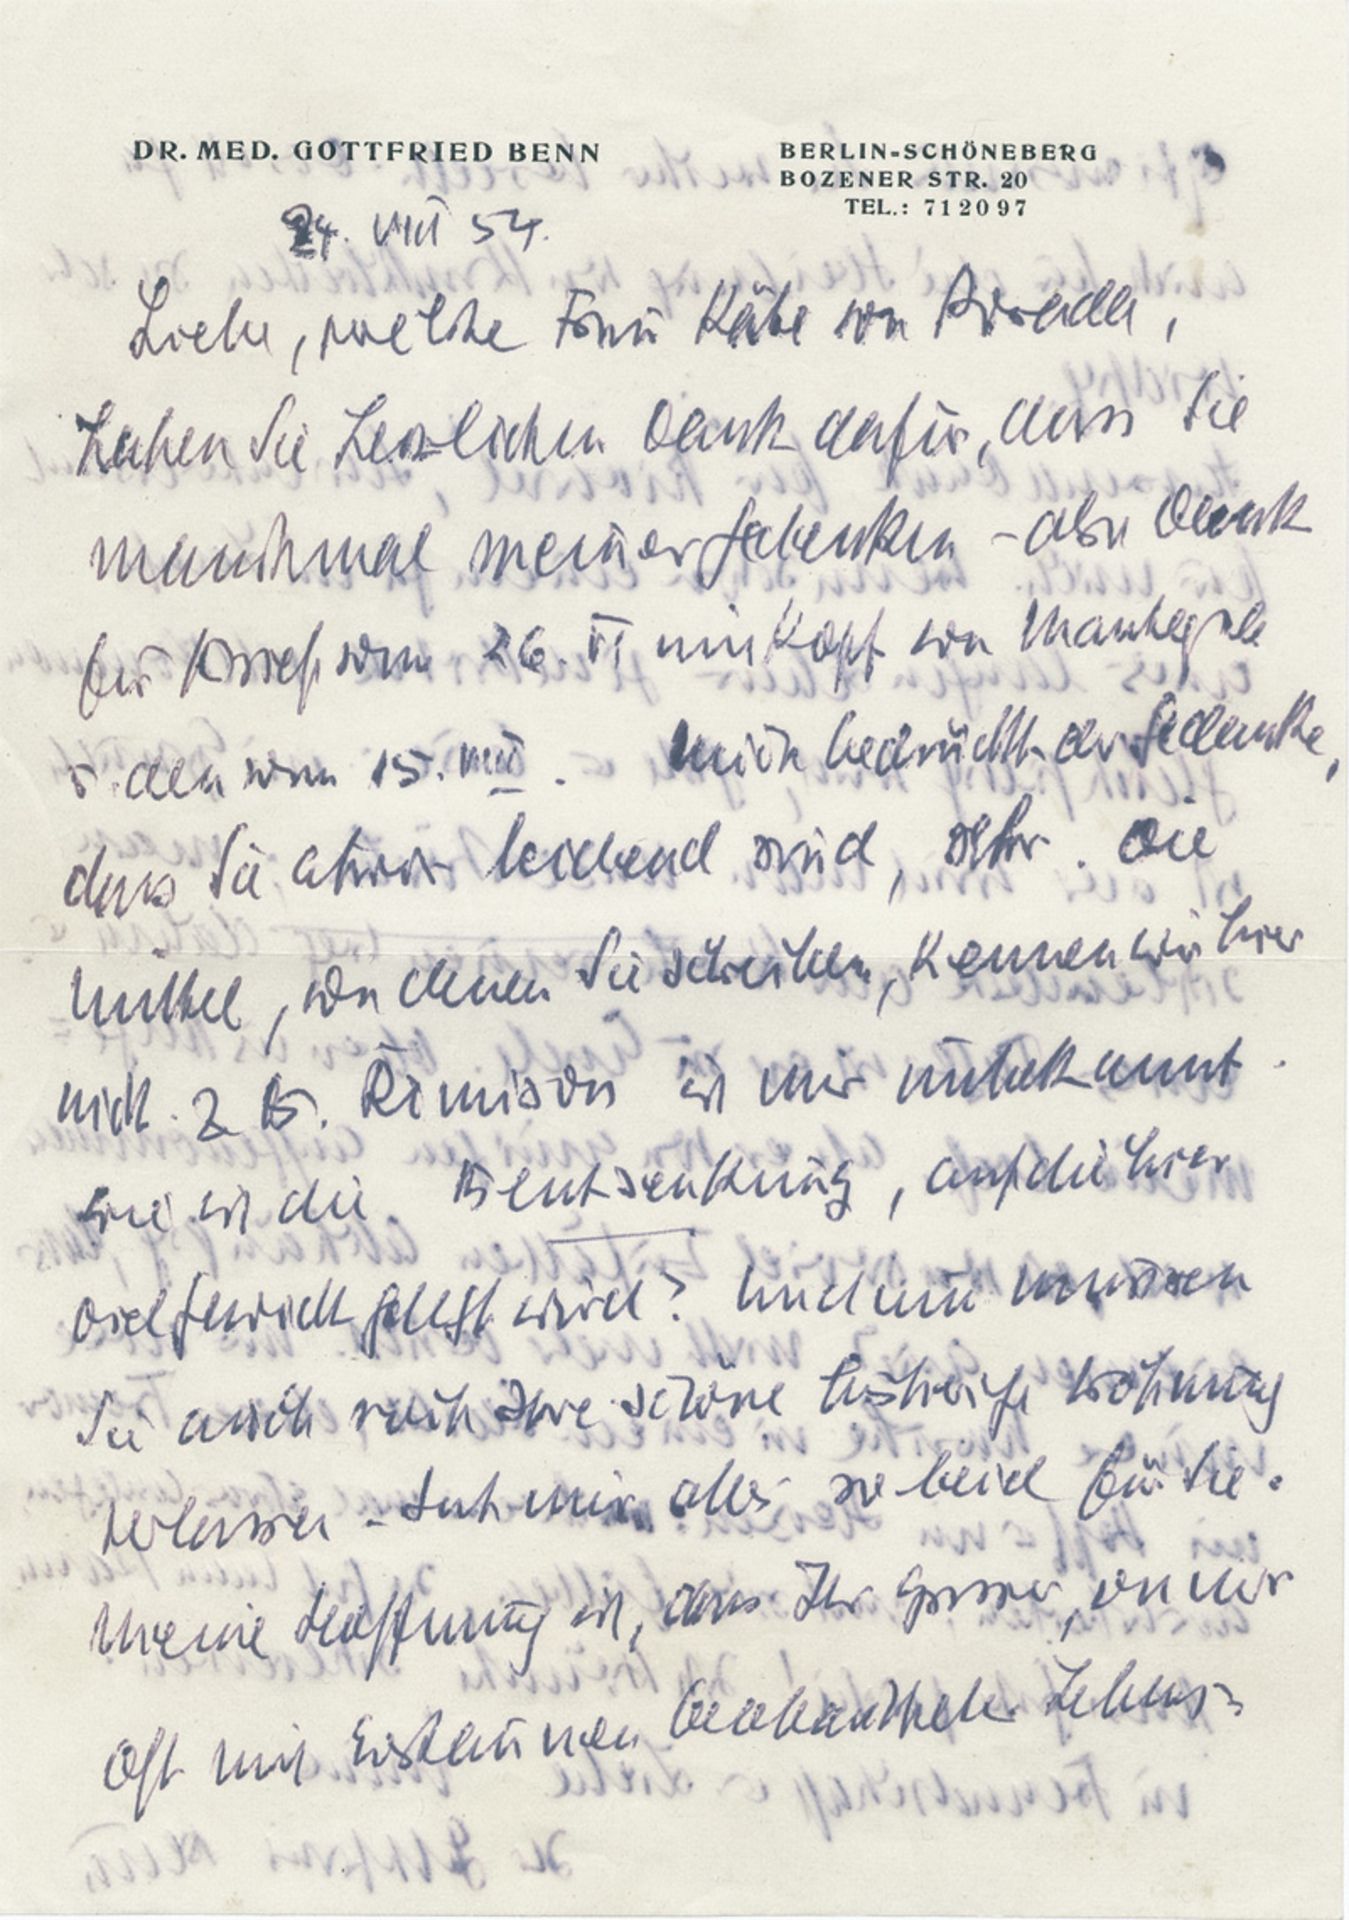 DR. MED. GOTTFRIED BENN
BERLIN-SCHÖNEBERG
BOZENER STR. 20
TEL.: 71 20 97
24. VIII 54.
Liebe, verehrte Frau Käte von Porada,
haben Sie herzlichen Dank dafür, dass Sie
manchmal meiner gedenken – also Dank
für Brief vom 26. VI mit Kopf von
u. den vom 15. VIII. Mich bedrückt der Gedanke,
dass Sie leidend sind, sehr. Die
Mittel, von denen Sie schreiben, kennen wir hier
nicht. z B. ist mir unbekannt.
Wie ist die Blutsenkung, auf die hier
viel Gewicht gelegt wird? Und nun müssen
Sie auch noch Ihre schöne Wohnung
verlassen – tut mir alles so leid für Sie.
Meine Hoffnung ist, dass Ihr grosser, von mir
oft mit Erstaunen beobachteter Lebens-